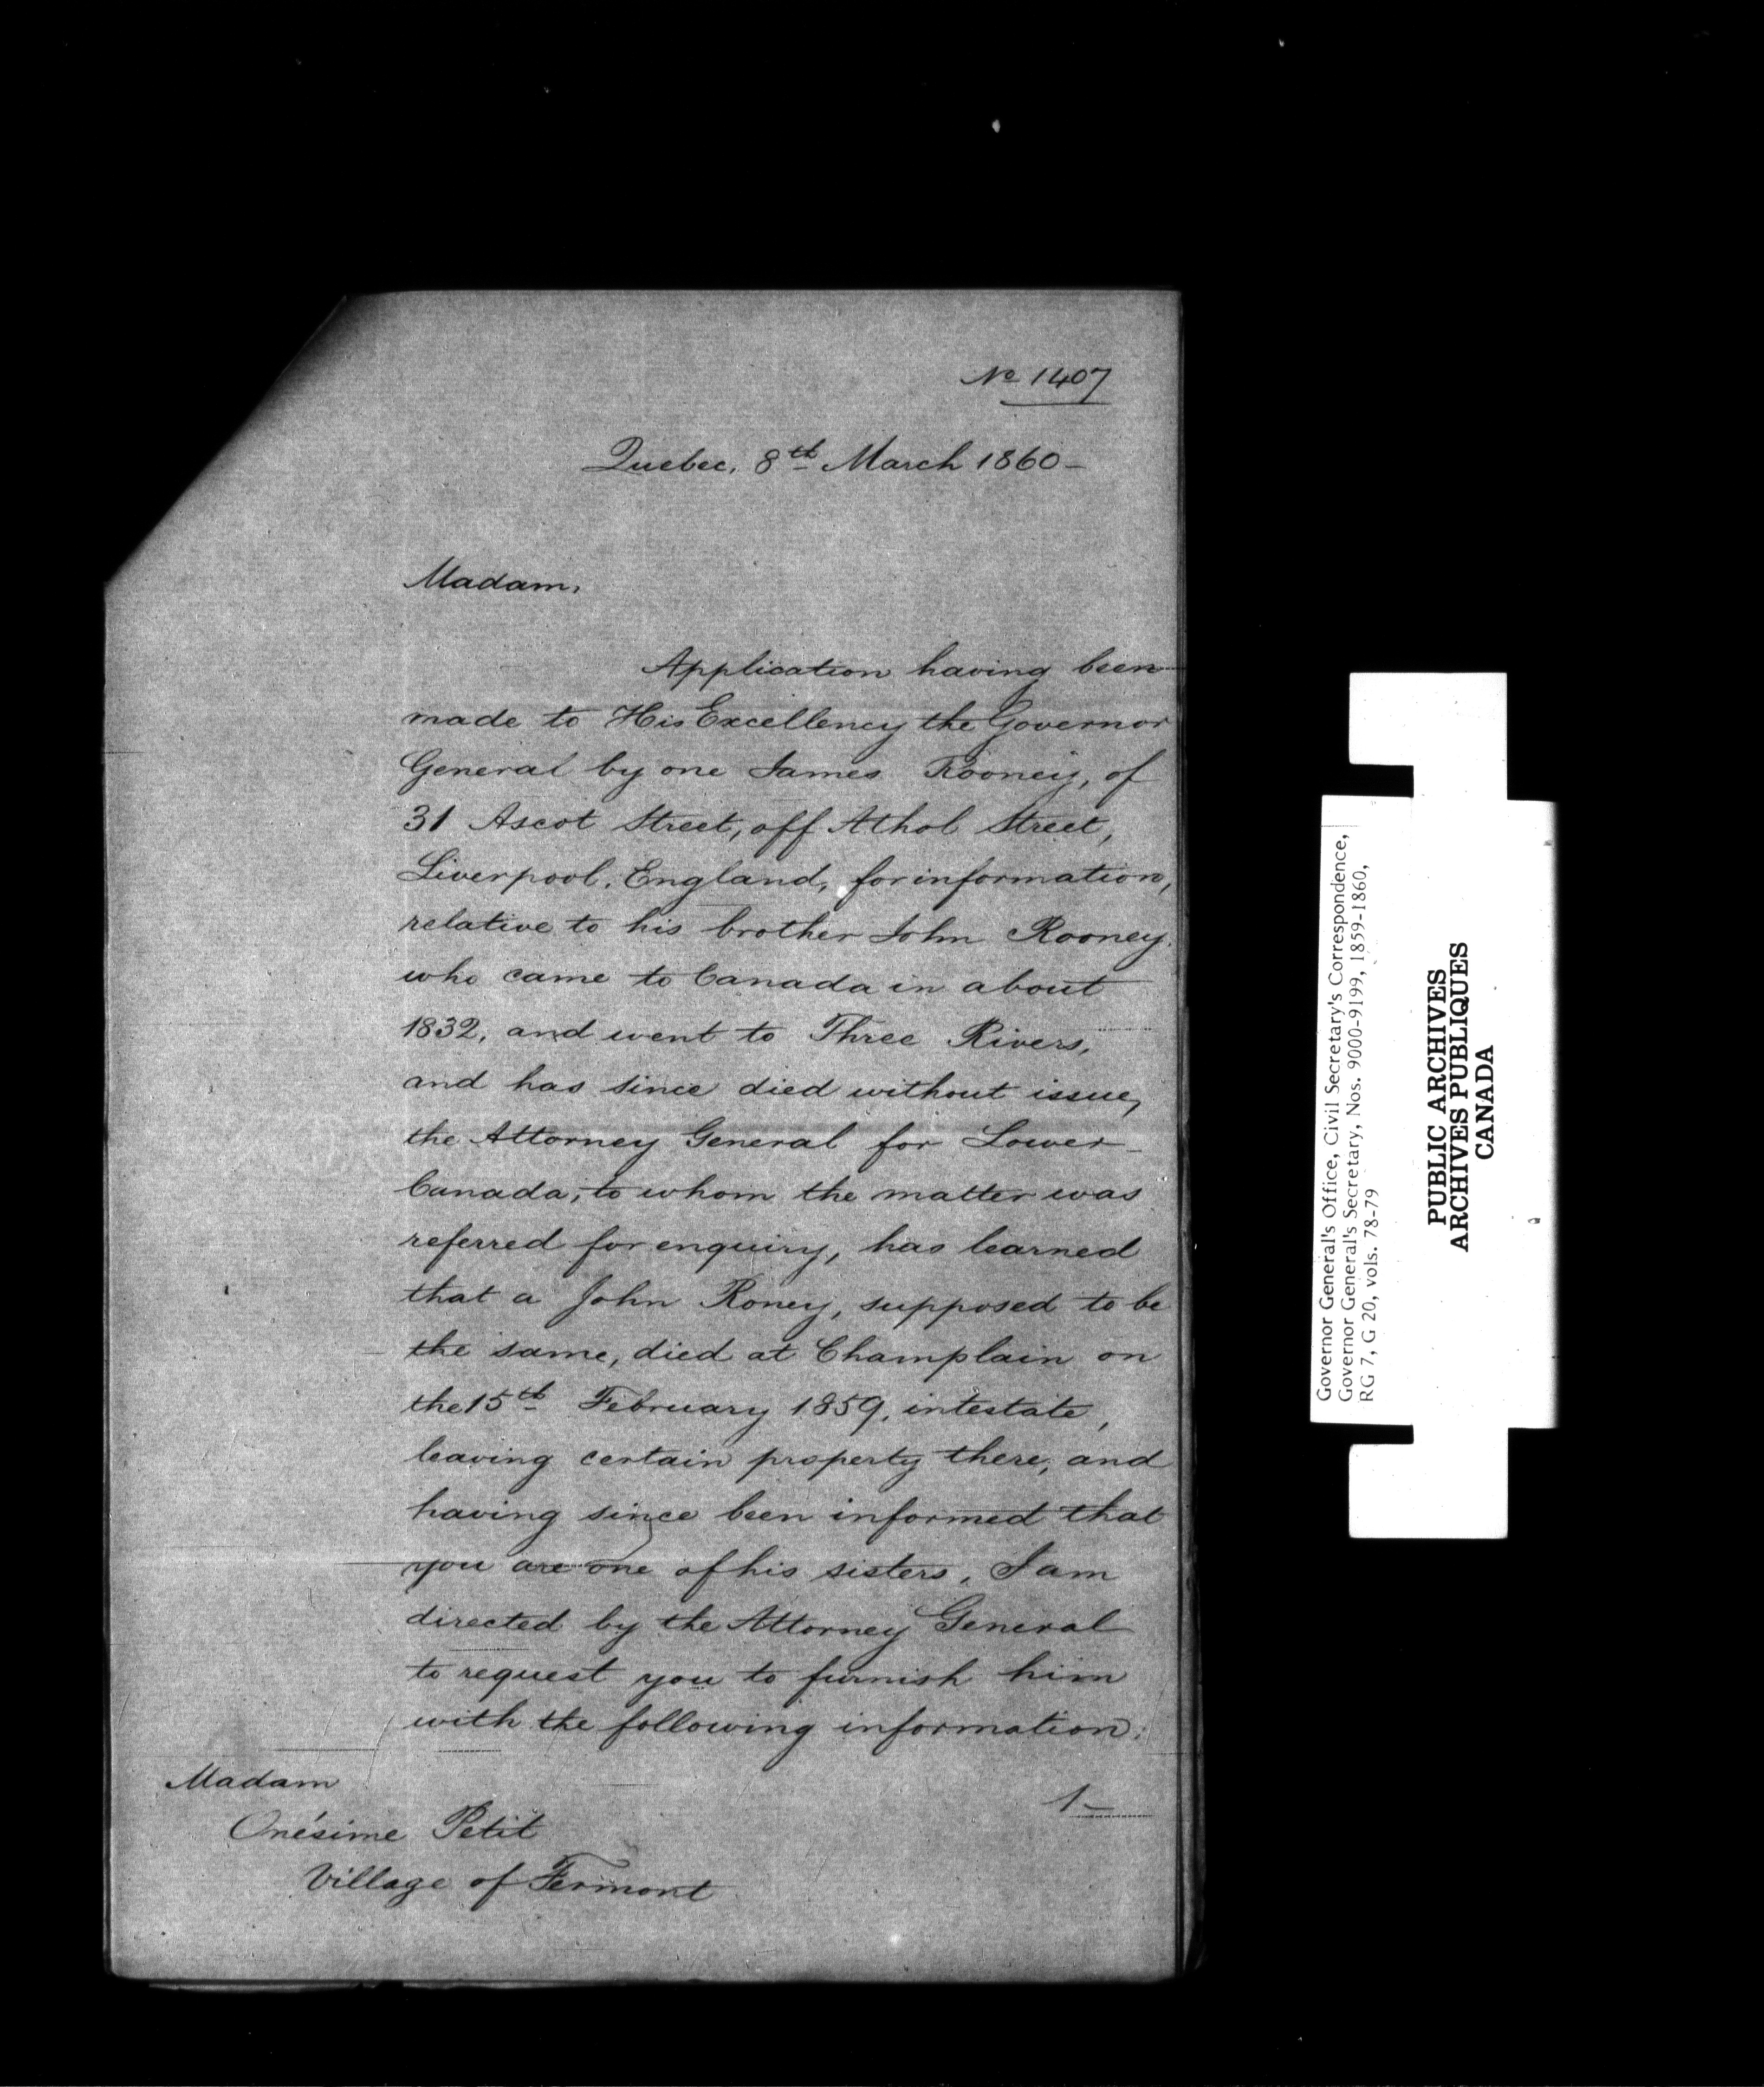 No 1407
Quebec, 8th March 1860-
Madam,
Application having been
made to His Excellency the Governor
General by one James Rooney, of
31 Ascot Street, off Athol Street,
Liverpool, England, for information,
relative to his brother John Rooney.
who came to Canada in about
1832, and went to Three Rivers,
and has since died without issue,
the Attorney General for Lower
Canada, to whom the matter was
referred for enquiry, has learned
that a John Roney, supposed to be
the same, died at Champlain on
the 15th February 1859, intestate,
leaving certain property there, and
having since been informed that
you are one of his sisters, I am
directed by the Attorney General
to request you to furnish him
with the following information:
1-
Madam
Onésime Petit
Village of Fermont
Governor General's Office, Civil Secretary's Correspondence,
Governor General's Secretary, Nos. 9000-9199, 1859-1860,
RG 7, G 20, vols. 78-79
PUBLIC ARCHIVES
ARCHIVES PUBLIQUES
CANADA